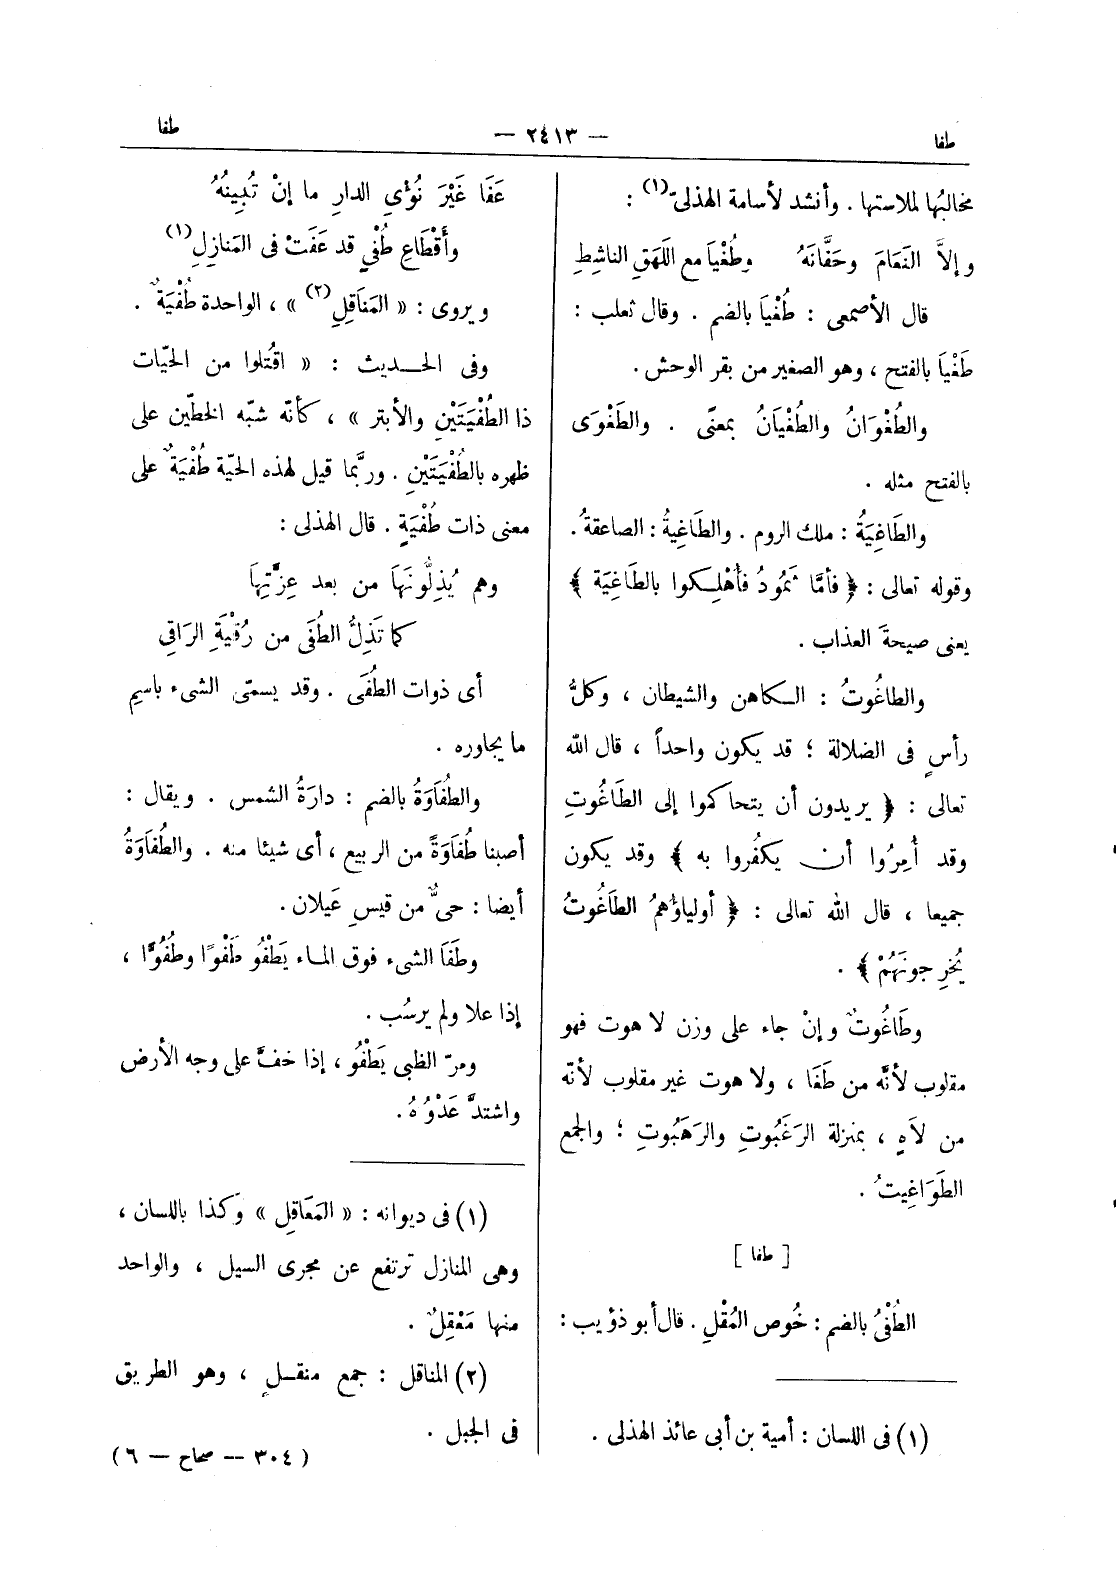 طفا — ٢٤١٣ — طفا
مخالبُها لملاستها . وأنشد لأسامة الهذلىّ(١) :
وإلاَّ النَعامَ وحَفَّانَهُ وطُغْيَا مع اللَهَقِ الناشِطِ
قال الأصمعى : طُغْيَا بالضم . وقال ثعلب :
طَغْيَا بالفتح ، وهو الصغير من بقر الوحش .
والطُغْوَانُ والطُغْيَانُ بمعنًى . والطَغْوَى
بالفتح مثله .
والطَاغِيَةُ : ملك الروم . والطَاغِيةُ : الصاعقةُ .
وقوله تعالى : ﴿ فأمَّا ثَمُودُ فأُهْلِكوا بالطَاغِيَة ﴾
يعنى صيحةَ العذاب .
والطاغُوتُ : الكاهن والشيطان ، وكلُّ
رأسٍ فى الضلالة ؛ قد يكون واحداً ، قال الله
تعالى : ﴿ يريدون أن يتحاكموا إلى الطَاغُوتِ
وقد أُمِرُوا أن يكفُروا به ﴾ وقد يكون
جميعا ، قال الله تعالى : ﴿ أولياؤهمُ الطَاغُوتُ
يُخرِجونَهُمْ ﴾ .
وطَاغُوتٌ وإنْ جاء على وزن لاهوت فهو
مقلوب لأنَّه من طَغَا ، ولاهوت غير مقلوب لأنّه
من لاَهٍ ، بمنزلة الرَغَبُوتِ والرَهَبُوتِ ؛ والجمع
الطَوَاغِيتُ .
[ طفا ]
الطُفْىُ بالضم : خُوص المُقْلِ . قال أبو ذؤيب :
(١) فى اللسان : أمية بن أبى عائذ الهذلى .
عَفَا غَيْرَ نُؤْىِ الدارِ ما إنْ تُبِينُهُ
وأَقْطَاعِ طُفْىٍ قد عَفَتْ فى المَنازِلِ(١)
ويروى : « المَنَاقِلِ(٢) » ، الواحدة طُفْيَةٌ .
وفى الحديث : « اقتُلوا من الحَيّات
ذا الطُفْيَتَيْنِ والأبتر » ، كأنّه شبّه الخطّين على
ظهره بالطُفْيَتَيْنِ . وربَّما قيل لهذه الحيّة طُفْيَةٌ على
معنى ذات طُفْيَةٍ . قال الهذلى :
وهم يُذِلُّونَهَا من بعد عِزَّتِها
كما تَذِلُّ الطُفَى من رُقْيَةِ الرَاقِى
أى ذوات الطُفَى . وقد يسمّى الشىء باسمِ
ما يجاوره .
والطُفَاوَةُ بالضم : دارَةُ الشمس . ويقال :
أصبنا طُفَاوَةً من الربيع ، أى شيئا منه . والطُفَاوَةُ
أيضا : حىٌّ من قيسِ عَيلان .
وطَفَا الشىء فوق الماء يَطْفُو طَفْوًا وطُفُوًّا ،
إذا علا ولم يرسُب .
ومرّ الظبى يَطْفُو ، إذا خفَّ على وجه الأرض
واشتدَّ عَدْوُهُ .
(١) فى ديوانه : « المَعَاقِلِ » وكذا باللسان ،
وهى المنازل ترتفع عن مجرى السيل ، والواحد
منها مَعْقِلٌ .
(٢) المناقل : جمع منقل ، وهو الطريق
فى الجبل .
( ٣٠٤ — صحاح — ٦ )